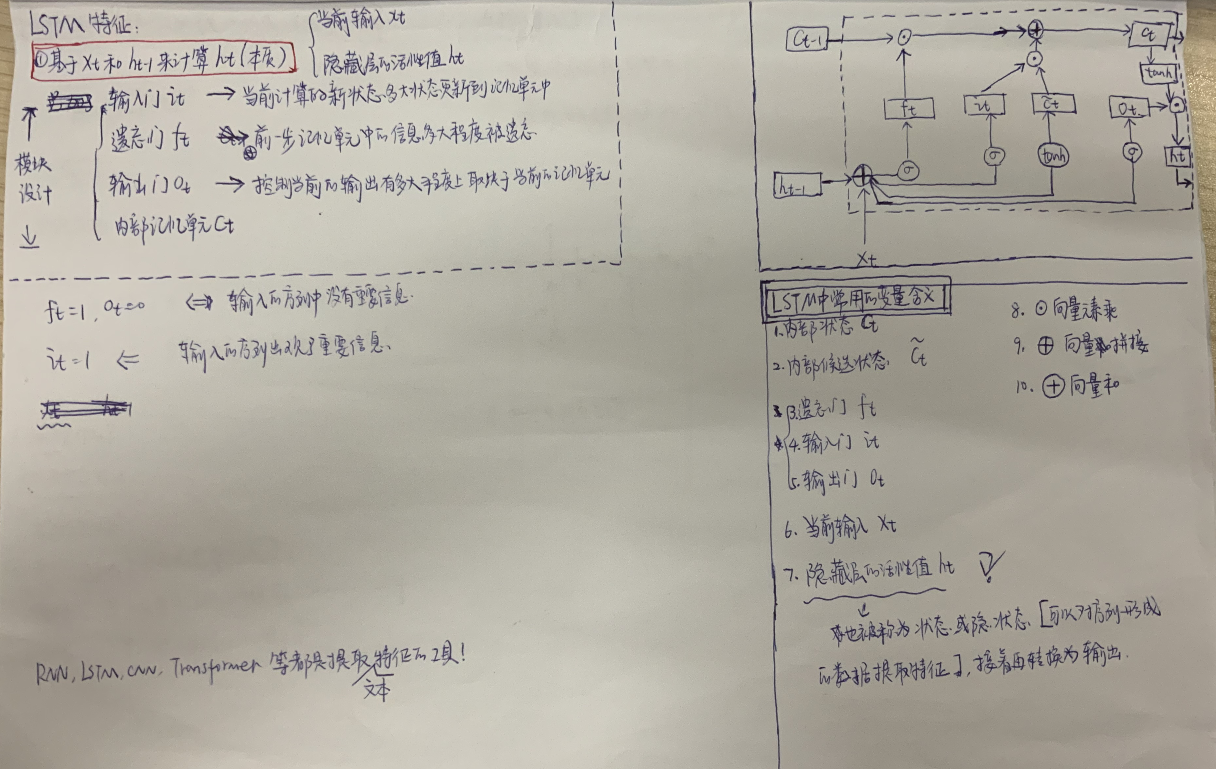 LSTM 特征:
当前输入 Xt
①基于 Xt 和 ht-1 来计算 ht (本质)
隐藏层的活性值 ht
模块设计
输入门 it → 当前计算的新状态多大状态更新到记忆单元中
遗忘门 ft → 前一步记忆单元中的信息多大程度被遗忘
输出门 Ot → 控制当前的输出有多大程度上取决于当前的记忆单元
内部记忆单元 Ct
ft=1, Ot=0 ⇔ 输入的序列中没有重要信息.
it=1 ⇐ 输入的序列出现了重要信息.
RNN, LSTM, CNN, Transformer 等都是提取特征的工具!
文本
Ct-1
⊙
⊕
Ct
tanh
⊙
ft
it
C̃t
Ot
⊙
σ
σ
tanh
σ
ht
ht-1
⊕
Xt
LSTM中常用的变量含义
1. 内部状态 Ct
2. 内部候选状态 C̃t
3. 遗忘门 ft
4. 输入门 it
5. 输出门 Ot
6. 当前输入 Xt
7. 隐藏层的活性值 ht
也被称为状态或隐状态. [可以对序列形成
的数据提取特征], 接着再转换为输出.
8. ⊙ 向量元素乘
9. ⊕ 向量拼接
10. ⊕ 向量和